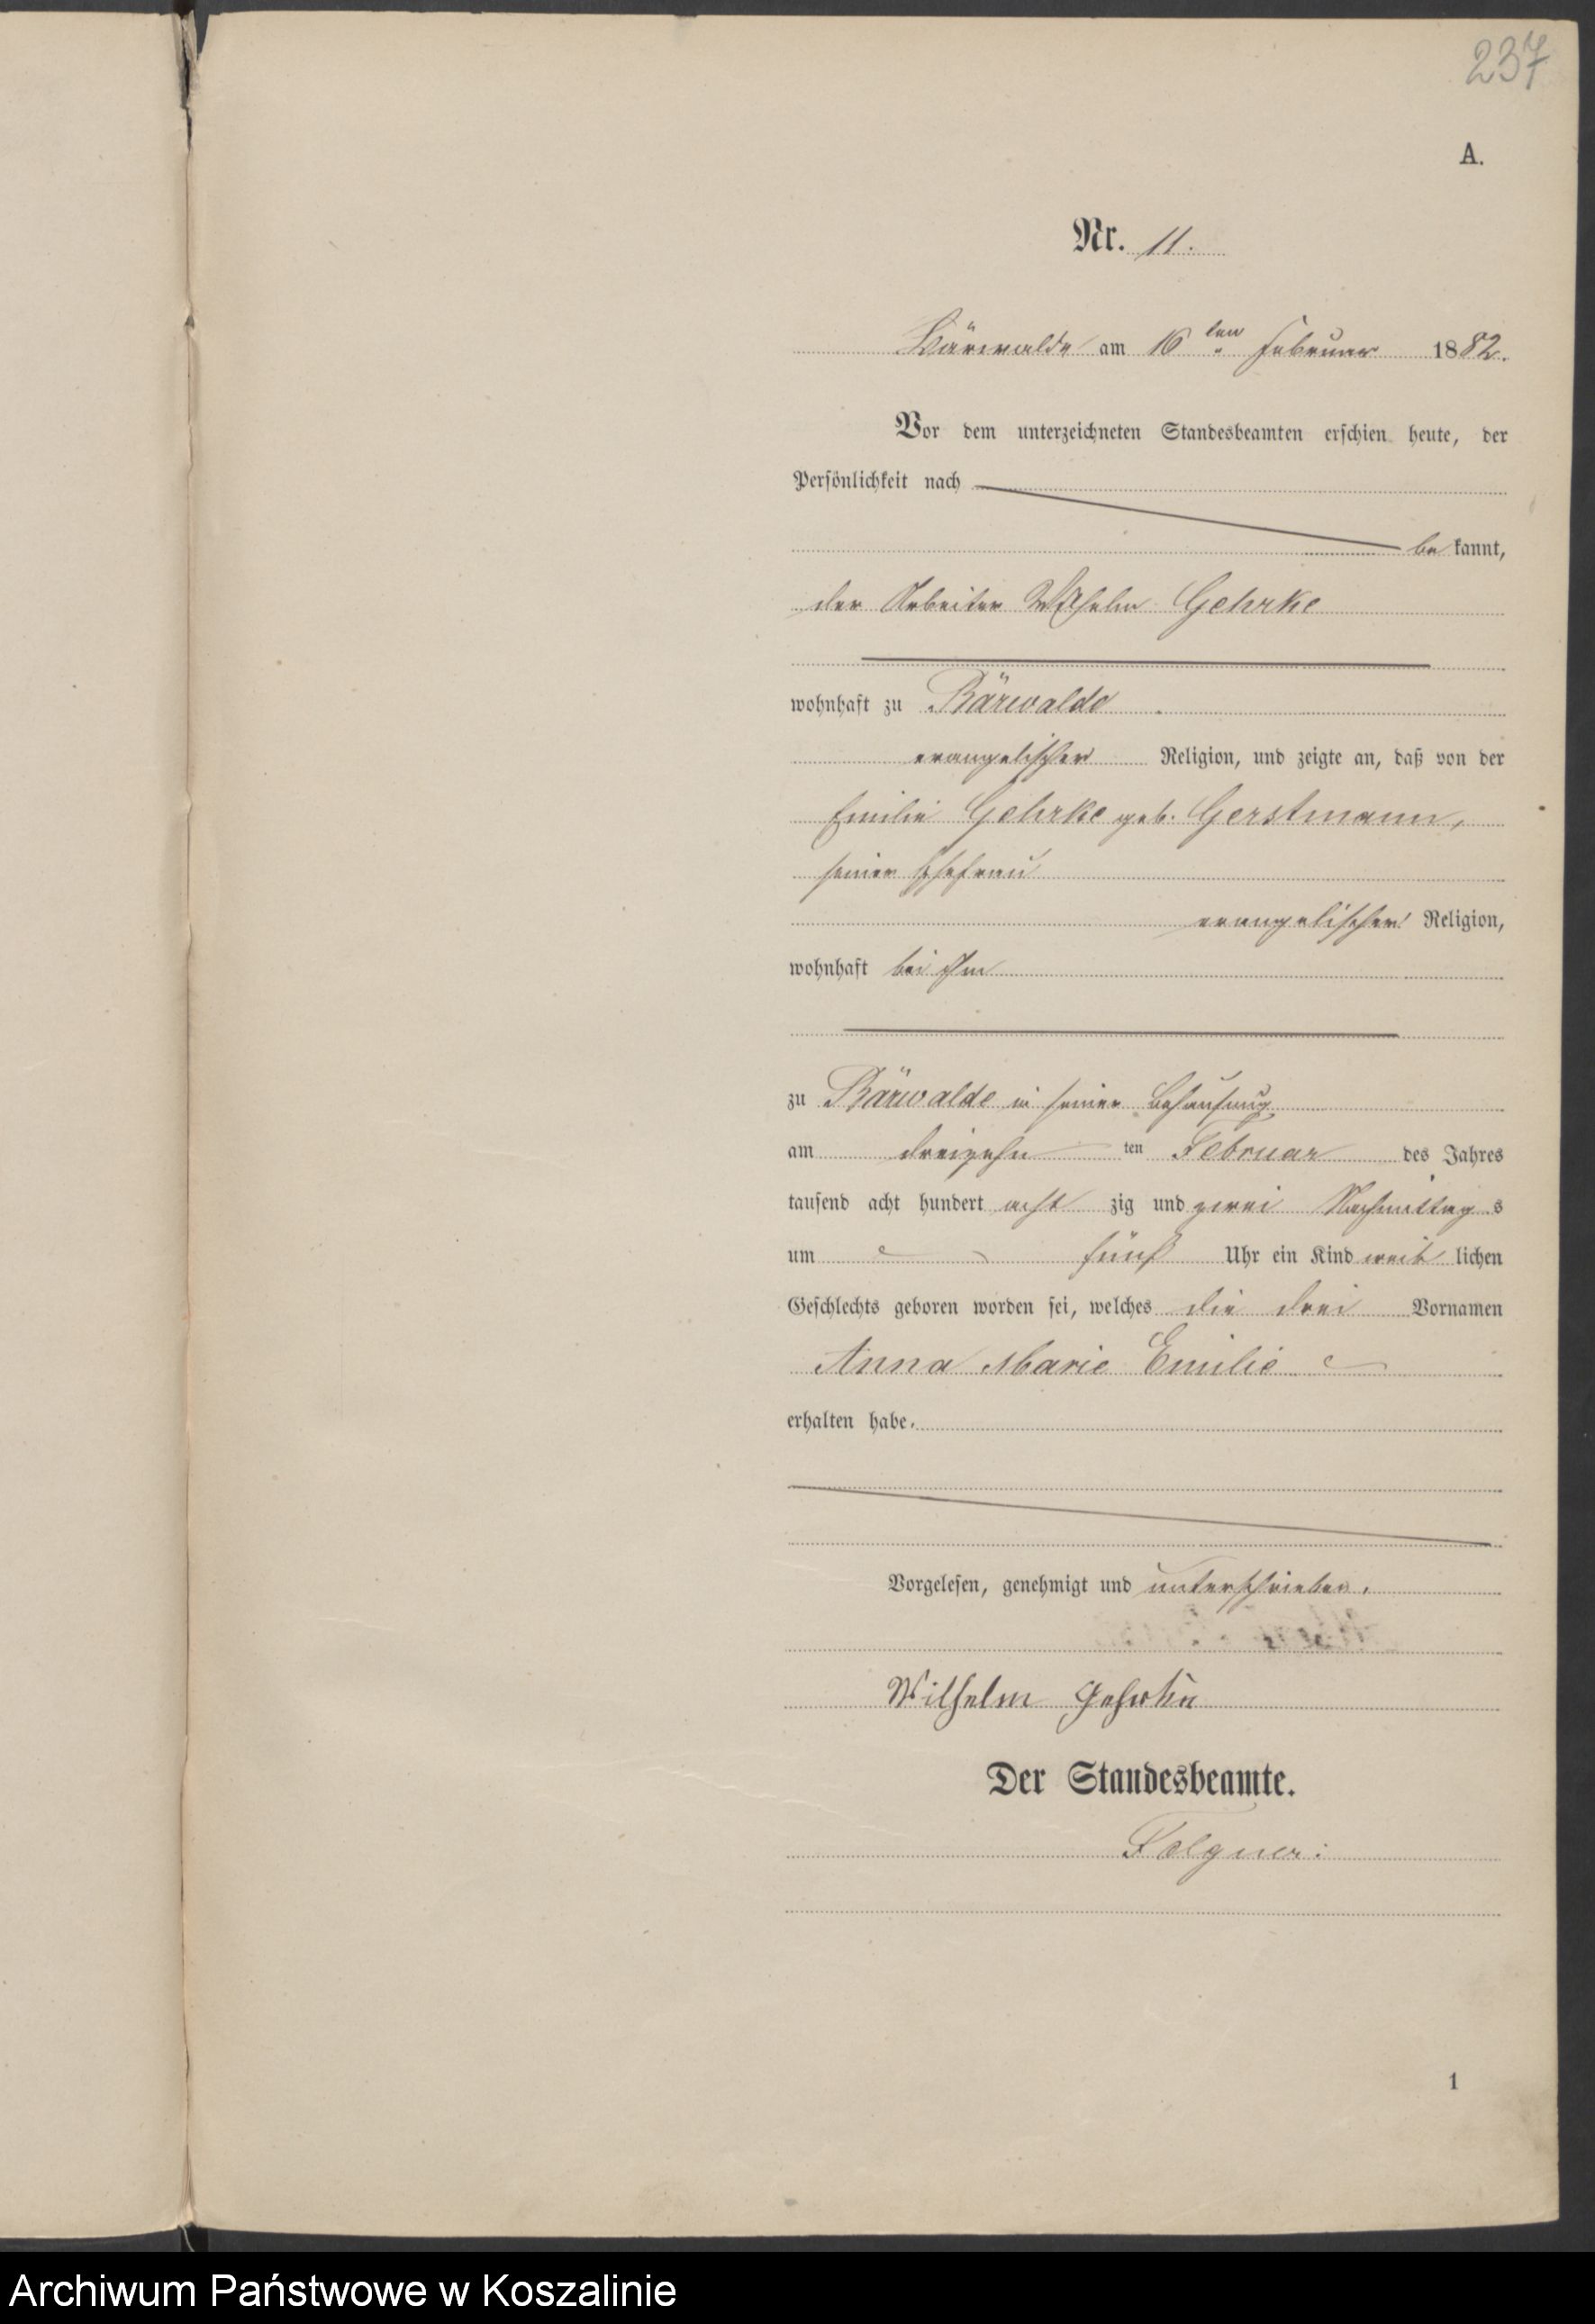 237
A.
Nr. 11.
Bärwalde am 16ten Februar 1882.
Vor dem unterzeichneten Standesbeamten erschien heute, der
Persönlichkeit nach
be kannt,
der Arbeiter Wilhelm Gehrke
wohnhaft zu Bärwalde
evangelischer Religion, und zeigte an, daß von der
Emilie Gehrke geb. Gerstmann,
seiner Ehefrau
evangelischer Religion,
wohnhaft bei ihm
zu Bärwalde in seiner Behausung
am dreizehn ten Februar des Jahres
tausend acht hundert acht zig und zwei Nachmittag s
um fünf Uhr ein Kind weib lichen
Geschlechts geboren worden sei, welches die drei Vornamen
Anna Marie Emilie
erhalten habe.
Vorgelesen, genehmigt und unterschrieben.
Wilhelm Gehrke
Der Standesbeamte.
Folgner.
1
Archiwum Państwowe w Koszalinie